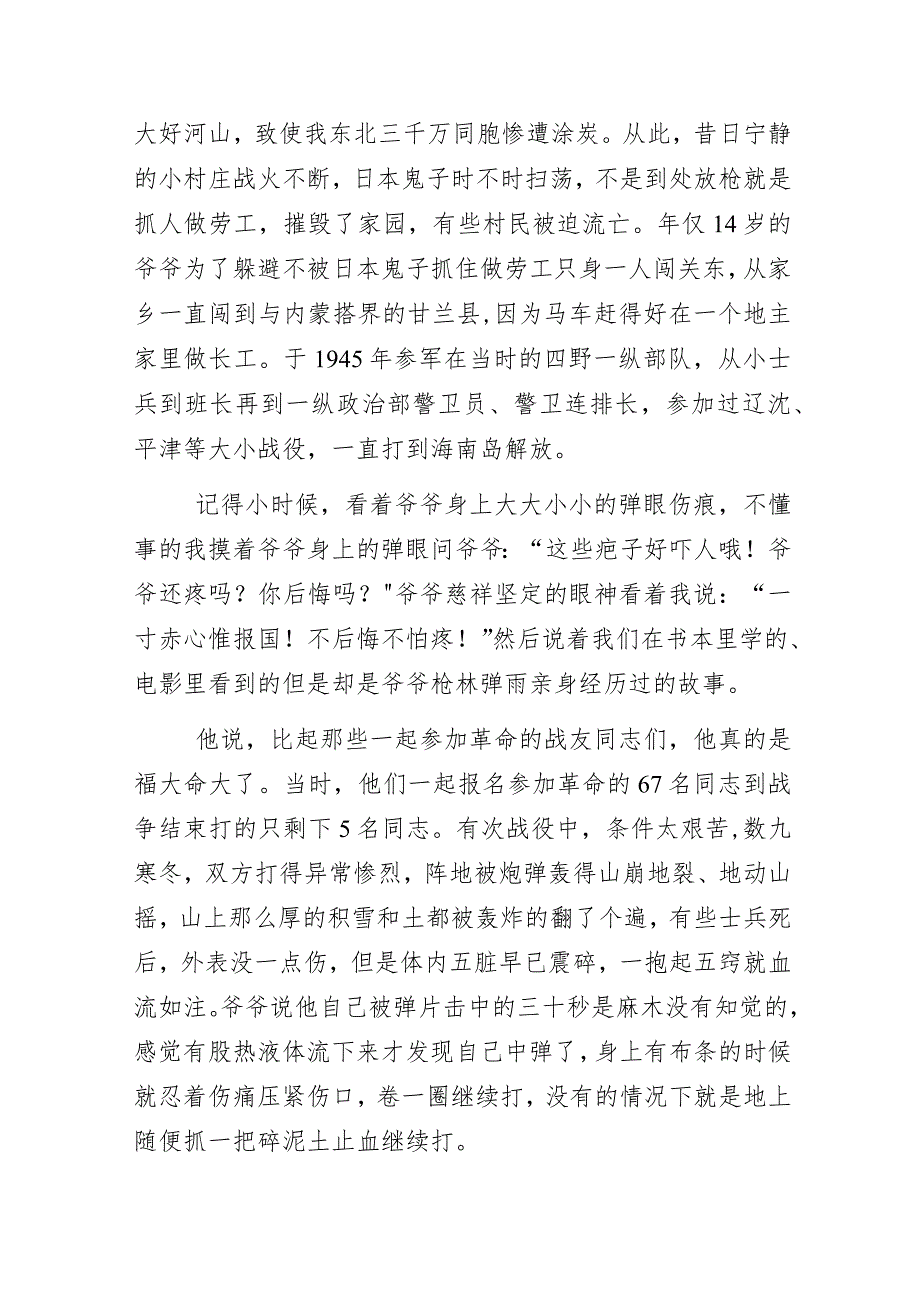 大好河山，致使我东北三千万同胞惨遭涂炭。从此，昔日宁静
的小村庄战火不断，日本鬼子时不时扫荡，不是到处放枪就是
抓人做劳工，摧毁了家园，有些村民被迫流亡。年仅 14 岁的
爷爷为了躲避不被日本鬼子抓住做劳工只身一人闯关东,从家
乡一直闯到与内蒙搭界的甘兰县,因为马车赶得好在一个地主
家里做长工。于 1945 年参军在当时的四野一纵部队，从小士
兵到班长再到一纵政治部警卫员、警卫连排长，参加过辽沈、
平津等大小战役，一直打到海南岛解放。
记得小时候，看着爷爷身上大大小小的弹眼伤痕，不懂
事的我摸着爷爷身上的弹眼问爷爷：“这些疤子好吓人哦！爷
爷还疼吗？你后悔吗？"爷爷慈祥坚定的眼神看着我说：“一
寸赤心惟报国！不后悔不怕疼！”然后说着我们在书本里学的、
电影里看到的但是却是爷爷枪林弹雨亲身经历过的故事。
他说，比起那些一起参加革命的战友同志们，他真的是
福大命大了。当时，他们一起报名参加革命的 67 名同志到战
争结束打的只剩下 5 名同志。有次战役中，条件太艰苦,数九
寒冬，双方打得异常惨烈，阵地被炮弹轰得山崩地裂、地动山
摇，山上那么厚的积雪和土都被轰炸的翻了个遍，有些士兵死
后，外表没一点伤，但是体内五脏早已震碎，一抱起五窍就血
流如注。爷爷说他自己被弹片击中的三十秒是麻木没有知觉的，
感觉有股热液体流下来才发现自己中弹了，身上有布条的时候
就忍着伤痛压紧伤口，卷一圈继续打，没有的情况下就是地上
随便抓一把碎泥土止血继续打。